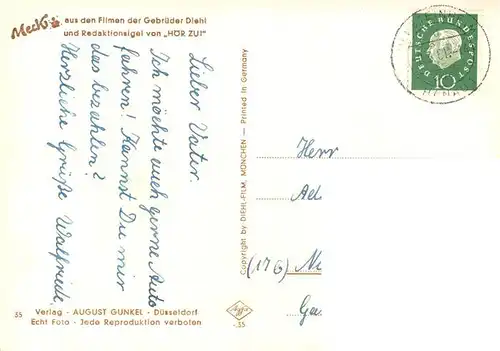 Mecki
aus den Filmen der Gebrüder Diehl
und Redaktionsigel von „HÖR ZU!"
Lieber Vater.
Ich möchte auch gerne Auto
fahren! Kannst Du mir
das bezahlen?
Herzliche Grüße Walfriede.
35 Verlag - AUGUST GUNKEL - Düsseldorf
Echt Foto - Jede Reproduktion verboten
Copyright by DIEHL-FILM, MÜNCHEN — Printed in Germany
Agfa
.35
DEUTSCHE BUNDESPOST
10
Herr
Ad
(17b) Ne